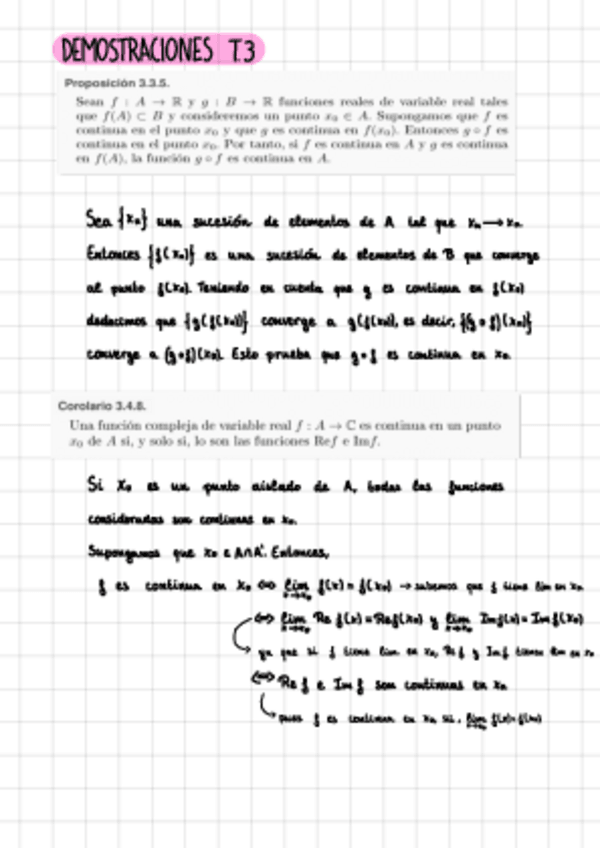 DEMOSTRACIONES T.3
Proposición 3.3.5.
Sean f : A → ℝ y g : B → ℝ funciones reales de variable real tales
que f(A) ⊂ B y consideremos un punto x₀ ∈ A. Supongamos que f es
continua en el punto x₀ y que g es continua en f(x₀). Entonces g ∘ f es
continua en el punto x₀. Por tanto, si f es continua en A y g es continua
en f(A), la función g ∘ f es continua en A.
Sea {xₙ} una sucesión de elementos de A tal que xₙ → x₀.
Entonces {f(xₙ)} es una sucesión de elementos de B que converge
al punto f(x₀). Teniendo en cuenta que g es continua en f(x₀)
deducimos que {g(f(xₙ))} converge a g(f(x₀)), es decir, {(g∘f)(xₙ)}
converge a (g∘f)(x₀). Esto prueba que g∘f es continua en x₀.
Corolario 3.4.8.
Una función compleja de variable real f : A → ℂ es continua en un punto
x₀ de A si, y solo si, lo son las funciones Ref e Imf.
Si x₀ es un punto aislado de A, todas las funciones
consideradas son continuas en x₀.
Supongamos que x₀ ∈ A∩A'. Entonces,
f es continua en x₀ ⟺ lim x→x₀ f(x) = f(x₀) → sabemos que f tiene lím en x₀
⟺ lim x→x₀ Re f(x) = Ref(x₀) y lim x→x₀ Imf(x) = Imf(x₀)
ya que si f tiene lím en x₀, Re f y Imf tienen lím en x₀
⟺ Re f e Im f son continuas en x₀
pues f es continua en x₀ si, lim x→x₀ f(x)=f(x₀)